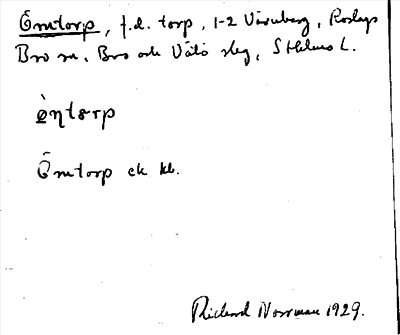 Ömtorp, f.d. torp, 1-2 Väsuberg, Roslags
Bro sn, Bro och Vätö slg, Sthlms L.
ö̀ntɷrp
Ömtorp ek kb.
Rickard Norrman 1929.